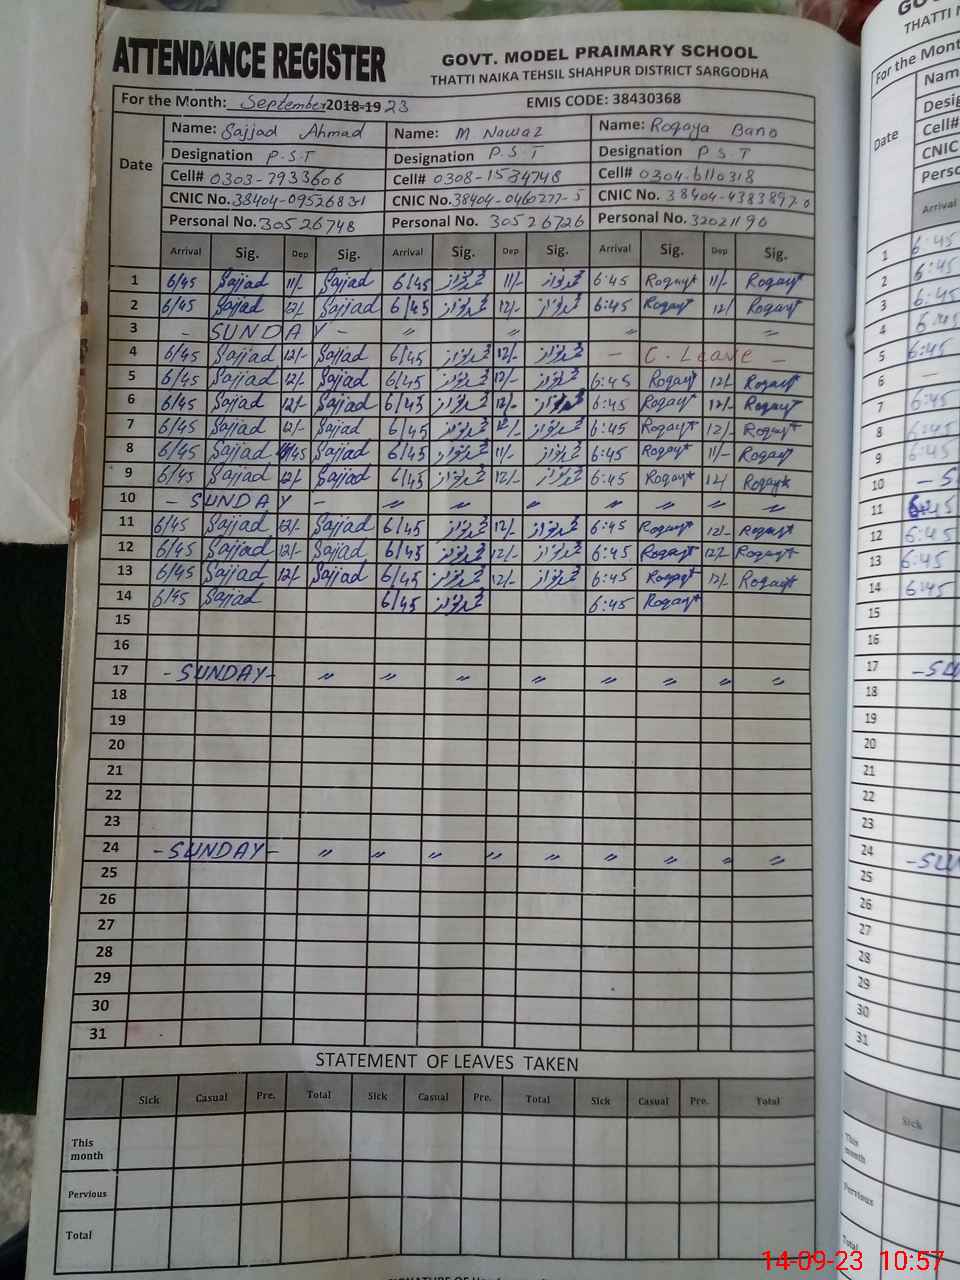 ATTENDANCE REGISTER
GOVT. MODEL PRAIMARY SCHOOL
THATTI NAIKA TEHSIL SHAHPUR DISTRICT SARGODHA
For the Month: September 2018-19 23 EMIS CODE: 38430368
Date Name: Sajjad Ahmad Name: M Nawaz Name: Roqaya Bano
Designation P.S.T Designation P.S.T Designation P.S.T
Cell# 0303-7933606 Cell# 0308-1534748 Cell# 0304-6110318
CNIC No. CNIC No. 38404-0460277-5 CNIC No. 38404-4383897-0
Personal No. 30526748 Personal No. 30526726 Personal No. 32021190
Arrival Sig. Dep Sig. Arrival Sig. Dep Sig. Arrival Sig. Dep Sig.
1 6/45 Sajjad 11/- Sajjad 6/45 محمد نواز 11/- محمد نواز 6:45 Roqaya 11/- Roqaya
2 6/45 Sajjad 12/- Sajjad 6/45 محمد نواز 12/- محمد نواز 6:45 Roqaya 12/ Roqaya
3 - SUNDAY - 〃 〃 〃 〃
4 6/45 Sajjad 12/- Sajjad 6/45 محمد نواز 12/- محمد نواز - C. Leave -
5 6/45 Sajjad 12/- Sajjad 6/45 محمد نواز 12/- محمد نواز 6:45 Roqaya 12/- Roqaya
6 6/45 Sajjad 12/- Sajjad 6/45 محمد نواز 12/- محمد نواز 6:45 Roqaya 12/- Roqaya
7 6/45 Sajjad 12/- Sajjad 6/45 محمد نواز 12/- محمد نواز 6:45 Roqaya 12/- Roqaya
8 6/45 Sajjad Sajjad 6/45 محمد نواز 11/- محمد نواز 6:45 Roqaya 11/- Roqaya
9 6/45 Sajjad 12/- Sajjad 6/45 محمد نواز 12/- محمد نواز 6:45 Roqaya 12/ Roqaya
10 - SUNDAY - 〃 〃 〃 〃 〃 〃 〃 〃
11 6/45 Sajjad 12/- Sajjad 6/45 محمد نواز 12/- محمد نواز 6:45 Roqaya 12/- Roqaya
12 6/45 Sajjad 12/- Sajjad 6/45 محمد نواز 12/- محمد نواز 6:45 Roqaya 12/- Roqaya
13 6/45 Sajjad 12/- Sajjad 6/45 محمد نواز 12/- محمد نواز 6:45 Roqaya 12/- Roqaya
14 6/45 Sajjad 6/45 محمد نواز 6:45 Roqaya
15
16
17 - SUNDAY - 〃 〃 〃 〃 〃 〃 〃 〃
18
19
20
21
22
23
24 - SUNDAY - 〃 〃 〃 〃 〃 〃 〃 〃 〃
25
26
27
28
29
30
31
STATEMENT OF LEAVES TAKEN
Sick Casual Pre. Total Sick Casual Pre. Total Sick Casual Pre. Total
This month
Pervious
Total
THATTI N
For the Mont
Date Nam
Desig
Cell#
CNIC
Perso
Arrival
1 6:45
2 6:45
3 6:45
4 6:45
5 6:45
6 -
7 6:45
8 6:45
9 6:45
10 - S
11 6:45
12 6:45
13 6:45
14 6:45
15
16
17 - SU
18
19
20
21
22
23
24 - SUN
25
26
27
28
29
30
31
Sick
This month
Pervious
Total
14-09-23 10:57